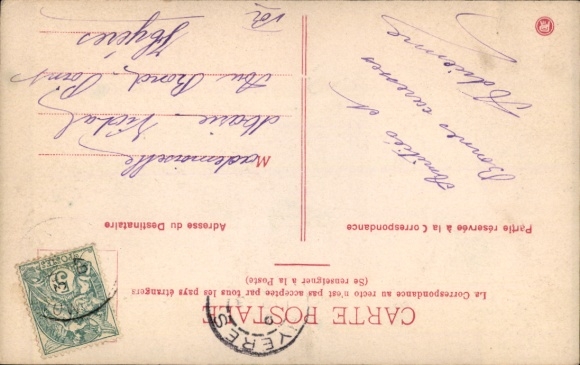 CARTE POSTALE
La Correspondance au recto n'est pas acceptée par tous les pays étrangers
(Se renseigner à la Poste)
Partie réservée à la Correspondance
Adresse du Destinataire
Amitiés et
Bonnes caresses
Adrienne
M
Mademoiselle
Marie Vidal
Au Rond Point
Hyères
Var
HYERES
5
POSTES